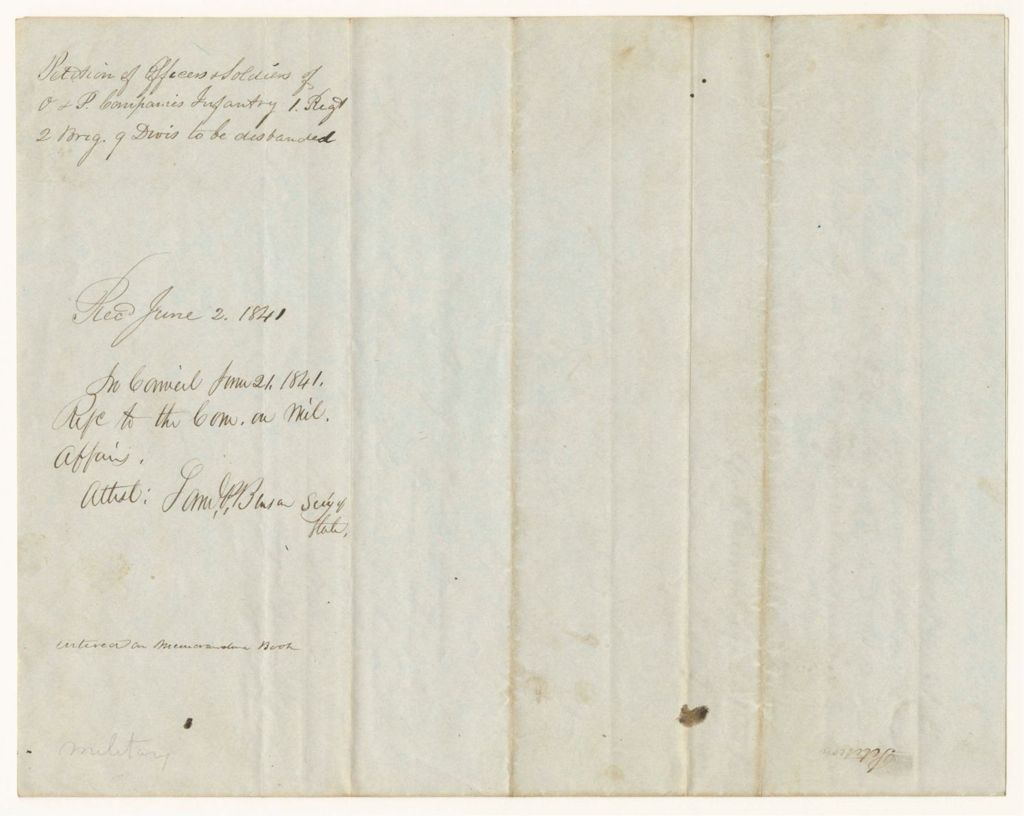 Petition of Officers & Soldiers of
O & P. Companies Infantry 1. Regt
2 Brig. 9 Divis to be disbanded
Recd June 2. 1841
In Council June 21. 1841.
Refd to the Com. on Mil.
Affairs.
Attest: Saml. P. Benson Secy of
State.
entered on Memorandum Book
military
Petition